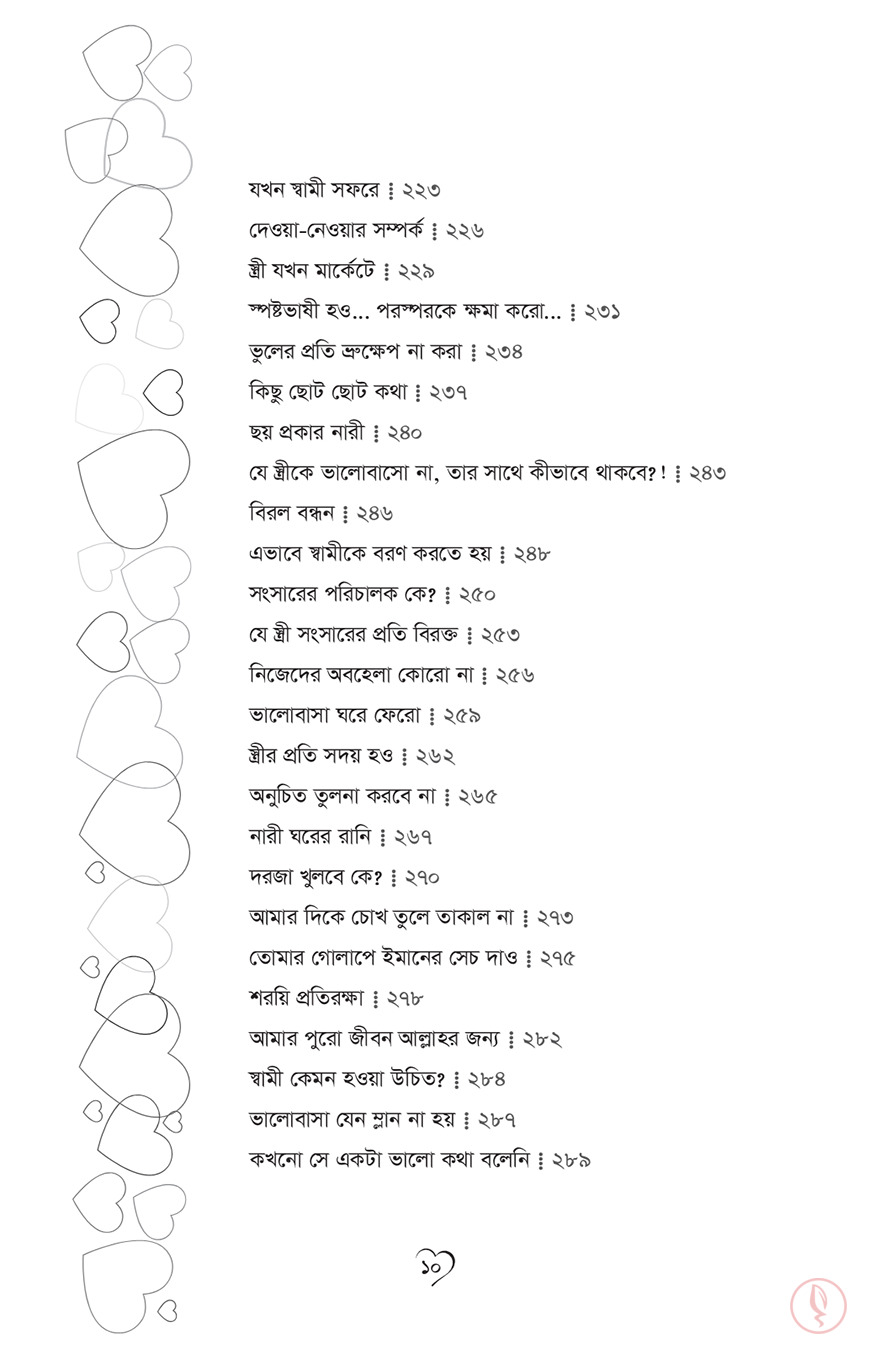 যখন স্বামী সফরে ⁞ ২২৩
দেওয়া-নেওয়ার সম্পর্ক ⁞ ২২৬
স্ত্রী যখন মার্কেটে ⁞ ২২৯
স্পষ্টভাষী হও... পরস্পরকে ক্ষমা করো... ⁞ ২৩১
ভুলের প্রতি ভ্রুক্ষেপ না করা ⁞ ২৩৪
কিছু ছোট ছোট কথা ⁞ ২৩৭
ছয় প্রকার নারী ⁞ ২৪০
যে স্ত্রীকে ভালোবাসো না, তার সাথে কীভাবে থাকবে?! ⁞ ২৪৩
বিরল বন্ধন ⁞ ২৪৬
এভাবে স্বামীকে বরণ করতে হয় ⁞ ২৪৮
সংসারের পরিচালক কে? ⁞ ২৫০
যে স্ত্রী সংসারের প্রতি বিরক্ত ⁞ ২৫৩
নিজেদের অবহেলা কোরো না ⁞ ২৫৬
ভালোবাসা ঘরে ফেরো ⁞ ২৫৯
স্ত্রীর প্রতি সদয় হও ⁞ ২৬২
অনুচিত তুলনা করবে না ⁞ ২৬৫
নারী ঘরের রানি ⁞ ২৬৭
দরজা খুলবে কে? ⁞ ২৭০
আমার দিকে চোখ তুলে তাকাল না ⁞ ২৭৩
তোমার গোলাপে ইমানের সেচ দাও ⁞ ২৭৫
শরয়ি প্রতিরক্ষা ⁞ ২৭৮
আমার পুরো জীবন আল্লাহর জন্য ⁞ ২৮২
স্বামী কেমন হওয়া উচিত? ⁞ ২৮৪
ভালোবাসা যেন ম্লান না হয় ⁞ ২৮৭
কখনো সে একটা ভালো কথা বলেনি ⁞ ২৮৯
১০